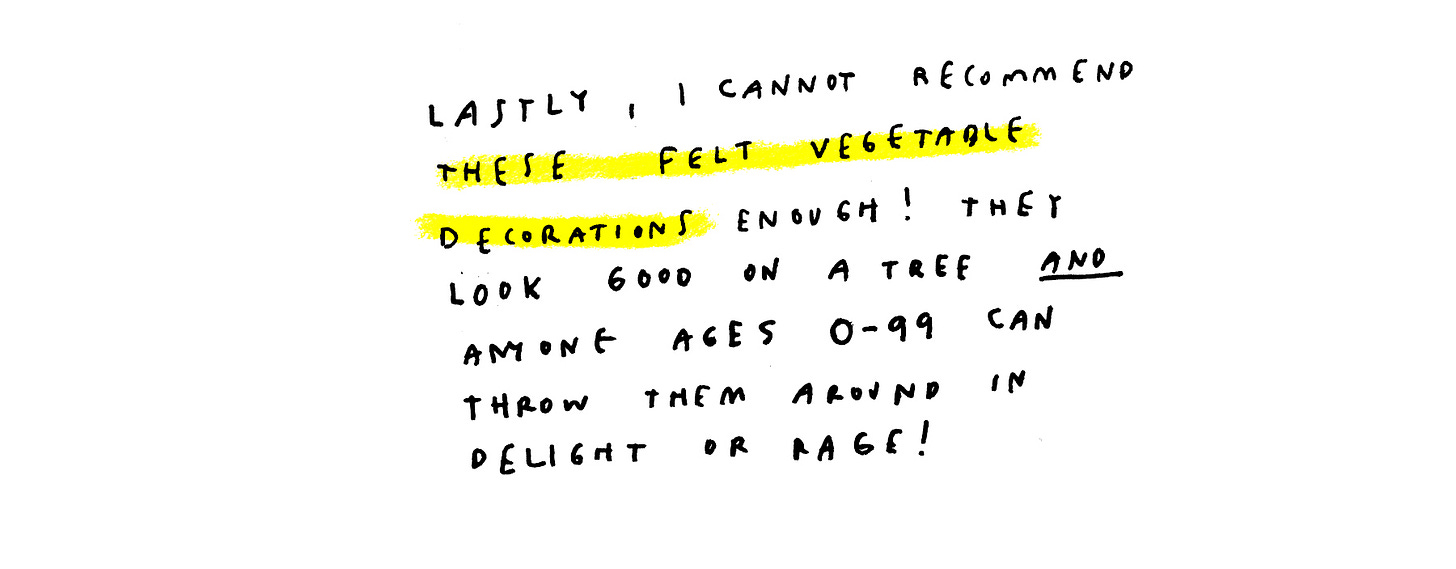 LASTLY, I CANNOT RECOMMEND
THESE FELT VEGETABLE
DECORATIONS ENOUGH! THEY
LOOK GOOD ON A TREE AND
ANYONE AGES 0-99 CAN
THROW THEM AROUND IN
DELIGHT OR RAGE!